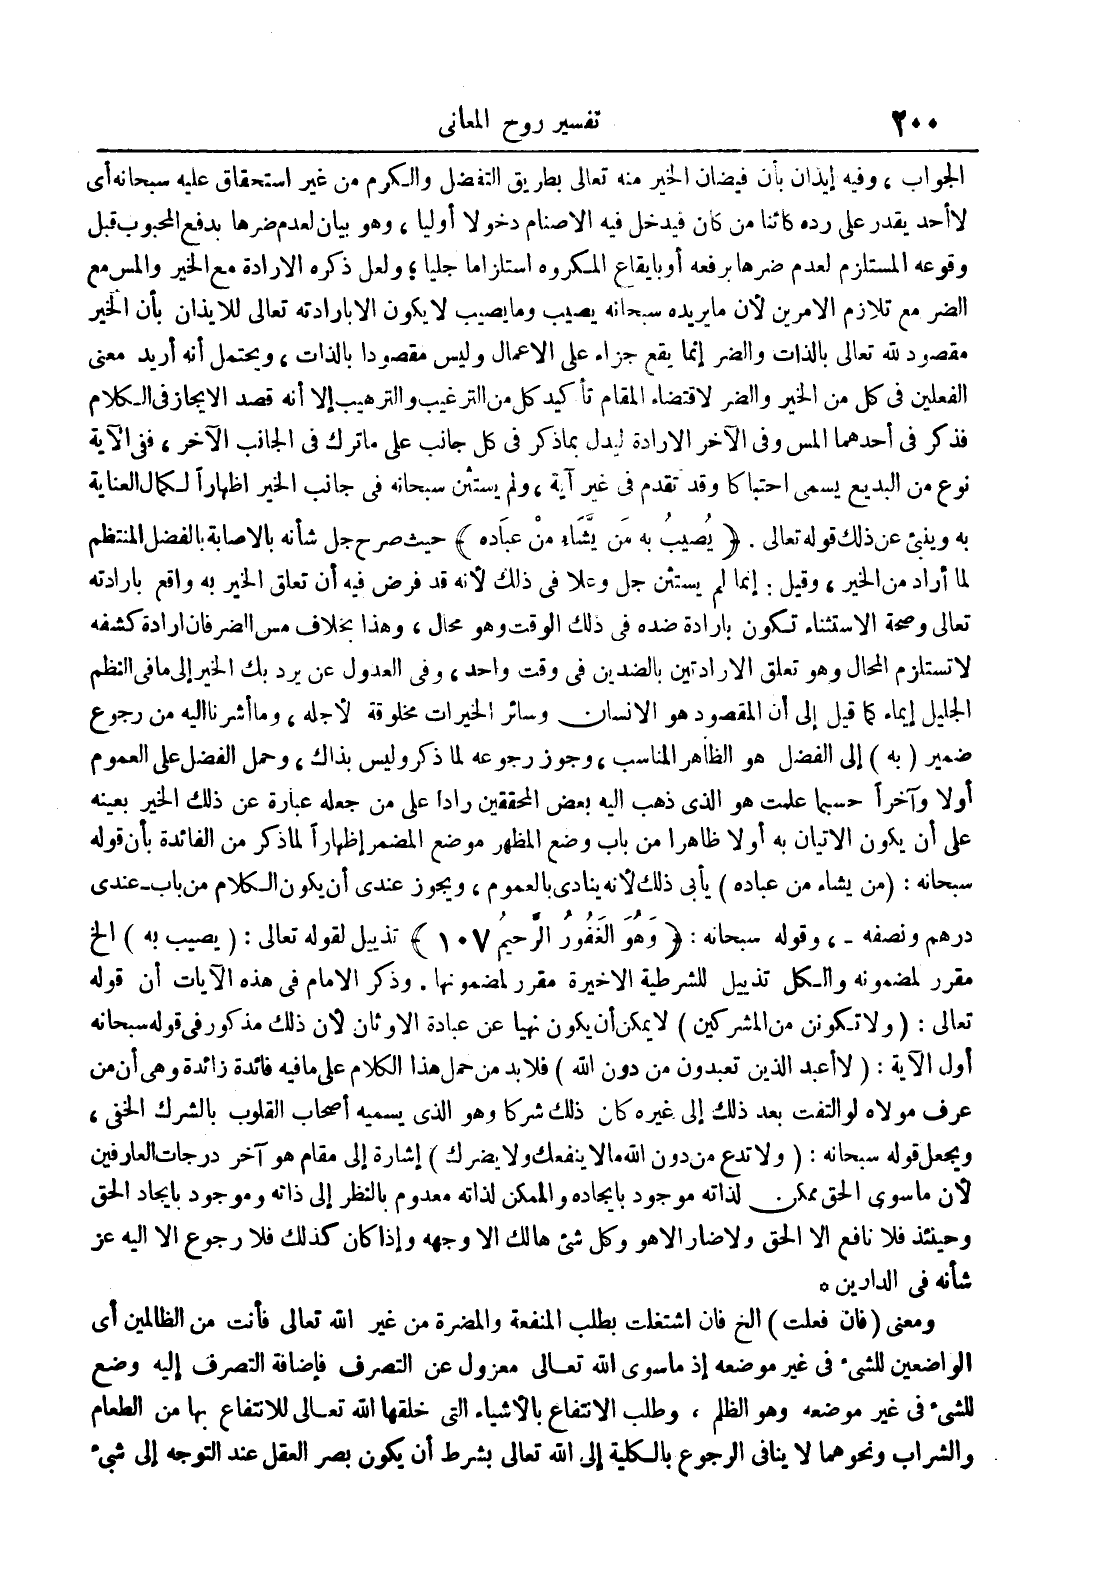 ٢٠٠ تفسير روح المعانى
الجواب ، وفيه إيذان بأن فيضان الخير منه تعالى بطريق التفضل والكرم من غير استحقاق عليه سبحانه أى
لا أحد يقدر على رده كائنا من كان فيدخل فيه الاصنام دخولا أوليا ، وهو بيان لعدم ضرها بدفع المحبوب قبل
وقوعه المستلزم لعدم ضرها برفعه أو بايقاع المكروه استلزاما جليا ؛ ولعل ذكره الارادة مع الخير والمس مع
الضر مع تلازم الامرين لأن ما يريده سبحانه يصيب وما يصيب لا يكون الا بارادته تعالى للايذان بأن الخير
مقصود لله تعالى بالذات والضر إنما يقع جزاء على الاعمال وليس مقصودا بالذات ، ويحتمل أنه أريد معنى
الفعلين فى كل من الخير والضر لاقتضاء المقام تأكيد كل من الترغيب والترهيب إلا أنه قصد الايجاز فى الكلام
فذكر فى أحدهما المس وفى الآخر الارادة ليدل بماذكر فى كل جانب على ماترك فى الجانب الآخر ، ففى الآية
نوع من البديع يسمى احتباكا وقد تقدم فى غير آية ، ولم يستثن سبحانه فى جانب الخير اظهاراً لكمال العناية
به وينبئ عن ذلك قوله تعالى . ﴿ يُصيبُ به مَن يَّشَاء منْ عبَاده ﴾ حيث صرح جل شأنه بالاصابة بالفضل المنتظم
لما أراد من الخير ، وقيل : إنما لم يستثن جل وعلا فى ذلك لأنه قد فرض فيه أن تعلق الخير به واقع بارادته
تعالى وصحة الاستثناء تكون بارادة ضده فى ذلك الوقت وهو محال ، وهذا بخلاف مس الضر فان ارادة كشفه
لا تستلزم المحال وهو تعلق الارادتين بالضدين فى وقت واحد ، وفى العدول عن يرد بك الخير إلى مافى النظم
الجليل إيماء كما قيل إلى أن المقصود هو الانسان وسائر الخيرات مخلوقة لأجله ، وما أشرنا اليه من رجوع
ضمير ( به ) إلى الفضل هو الظاهر المناسب ، وجوز رجوعه لما ذكر وليس بذاك ، وحمل الفضل على العموم
أولا وآخراً حسبما علمت هو الذى ذهب اليه بعض المحققين رادا على من جعله عبارة عن ذلك الخير بعينه
على أن يكون الاتيان به أولا ظاهرا من باب وضع المظهر موضع المضمر إظهاراً لماذكر من الفائدة بأن قوله
سبحانه : (من يشاء من عباده ) يأبى ذلك لأنه ينادى بالعموم ، ويجوز عندى أن يكون الكلام من باب ـ عندى
درهم ونصفه ـ ، وقوله سبحانه : ﴿ وَهُوَ الغَفُورُ الرَّحيمُ ١٠٧ ﴾ تذييل لقوله تعالى : ( يصيب به ) الخ
مقرر لمضمونه والكل تذييل للشرطية الاخيرة مقرر لمضمونها . وذكر الامام فى هذه الآيات أن قوله
تعالى : ( ولا تكونن من المشركين ) لا يمكن أن يكون نهيا عن عبادة الاوثان لأن ذلك مذكور فى قوله سبحانه
أول الآية : ( لا أعبد الذين تعبدون من دون الله ) فلابد من حمل هذا الكلام على مافيه فائدة زائدة وهى أن من
عرف مولاه لو التفت بعد ذلك إلى غيره كان ذلك شركا وهو الذى يسميه أصحاب القلوب بالشرك الخفى ،
ويجعل قوله سبحانه : ( ولا تدع من دون الله ما لا ينفعك ولا يضرك ) إشارة إلى مقام هو آخر درجات العارفين
لأن ماسوى الحق ممكن لذاته موجود بايجاده والممكن لذاته معدوم بالنظر إلى ذاته وموجود بايجاد الحق
وحينئذ فلا نافع الا الحق ولا ضار الا هو وكل شئ هالك الا وجهه وإذا كان كذلك فلا رجوع الا اليه عز
شأنه فى الدارين *
ومعنى (فان فعلت ) الخ فان اشتغلت بطلب المنفعة والمضرة من غير الله تعالى فأنت من الظالمين أى
الواضعين للشىء فى غير موضعه إذ ماسوى الله تعالى معزول عن التصرف فإضافة التصرف إليه وضع
للشىء فى غير موضعه وهو الظلم ، وطلب الانتفاع بالأشياء التى خلقها الله تعالى للانتفاع بها من الطعام
والشراب ونحوهما لا ينافى الرجوع بالكلية إلى الله تعالى بشرط أن يكون بصر العقل عند التوجه إلى شىء